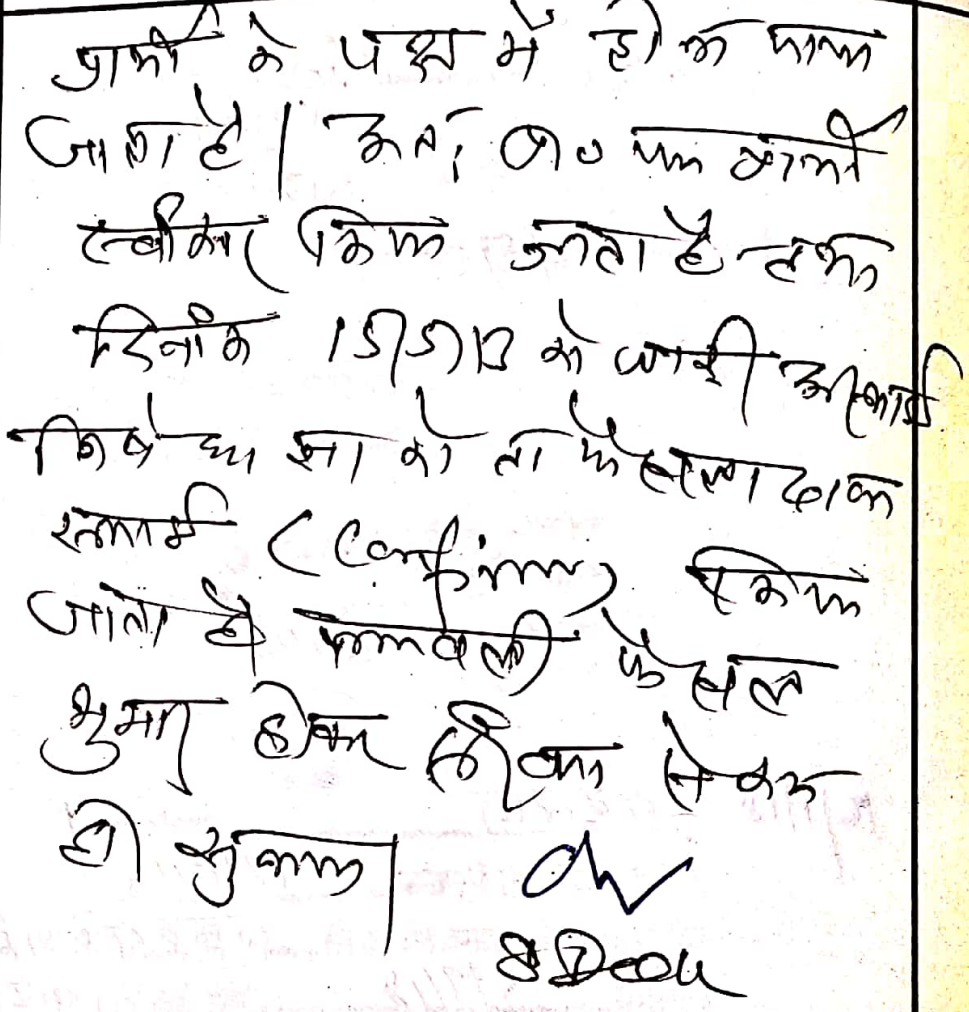 प्रार्थी के पक्ष में ही क पाया
जाता है। अतः प्रा० पत्र प्रार्थी
स्वीकार किया जाता है तथा
दिनांक 15/5/13 को जारी अस्थाई
निषेधाज्ञा को ता फैसला दावा
स्थाई (Confirm) किया
जाता है। पत्रावली फैसल
शुमार होकर नम्बर से कम
हो सुनाया।